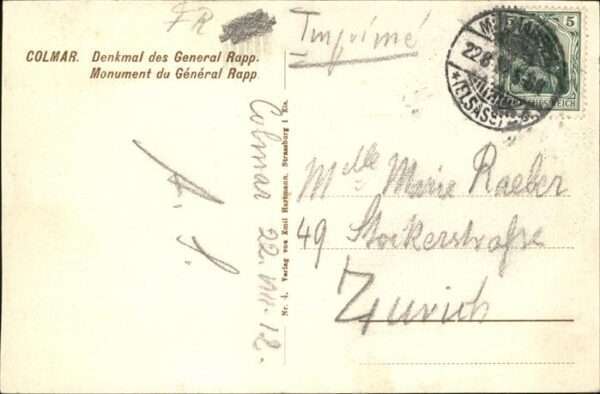 FR
Imprimé
COLMAR. Denkmal des General Rapp.
Monument du Général Rapp
5
REICH
22.8
*(ELSASS)
A. S.
Colmar 22. VIII. 12.
Nr. 4. Verlag von Emil Hartmann, Strassburg i. Els.
Mlle Marie Raeber
49 Stockerstrasse
Zurich